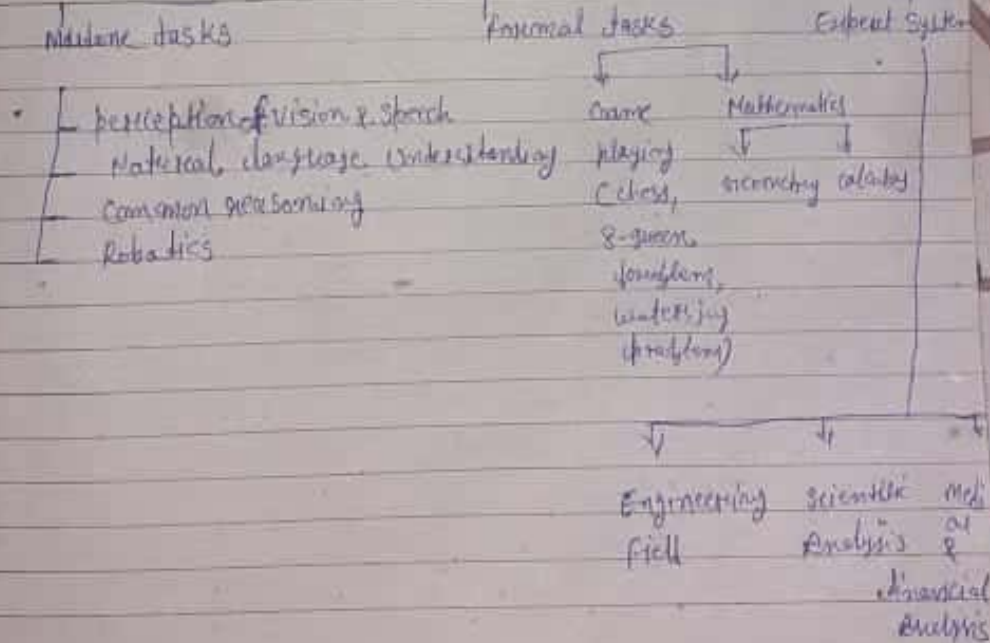 Mundane tasks
Formal tasks
Expert System
perception of vision & speech
Natural language Understanding
Common reasoning
Robotics
Game
playing
(chess,
8-queen
problem,
water jug
problem)
Mathematics
Geometry calculus
Engineering
field
Scientific
Analysis
Medi
al
&
financial
Analysis